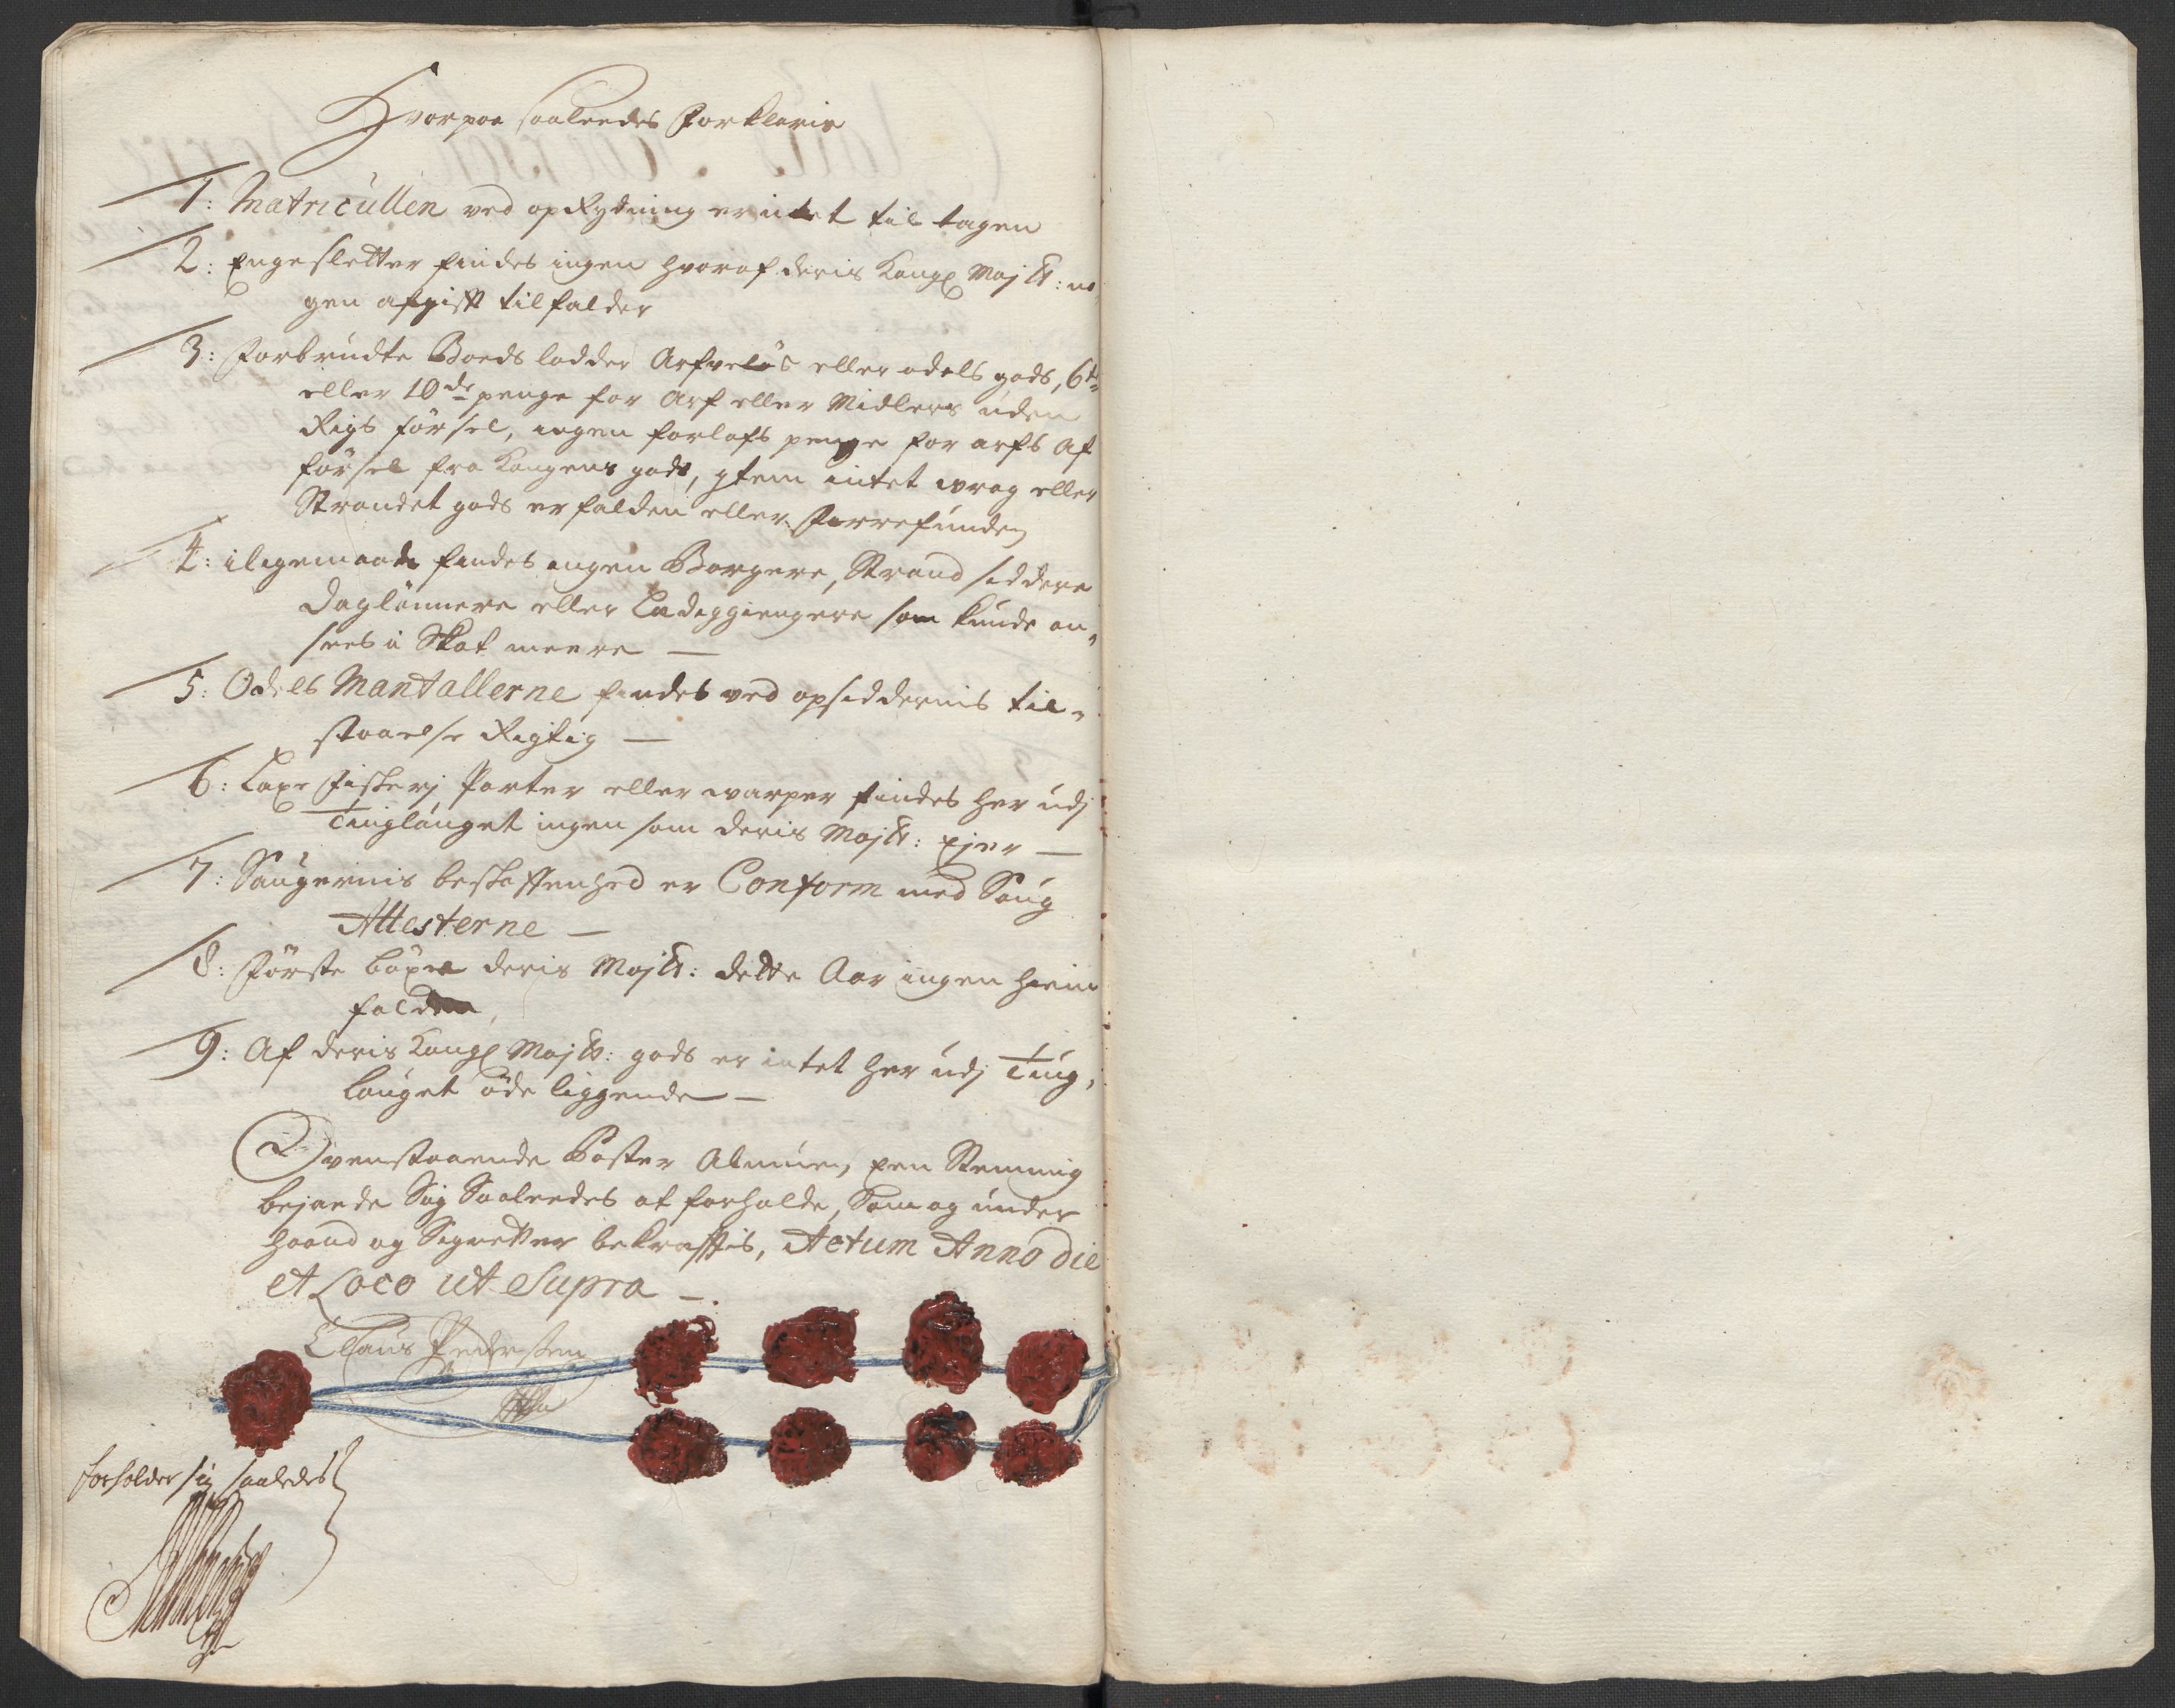 Hvorpaa saaleedes Forklaris
1: Matricullen ved opRydning er intet til tagen
2: Engesletter findes ingen hvoraf deris Kongl Majtt: no„
gen afgift tilfalder
3: Forbrudte Boeds lodder Arfveløs eller odels gods, 6te
eller 10de penge for Arf eller Midlers uden
Rigs førsel, ingen forlofs penge for arfs Af
førsel fra Kongens gods, Item intet wrag eller
Strandet gods er falden eller
4: iligemaade findes ingen Borgere, Strand siddere
Daglønnere eller Ledeggiengere som kunde an„
sees i Skat meere —
5: Odels Mantallerne findes ved opsiddernis til„
staaelse Rigtig —
6: Laxe Fiskerj Parter eller warper findes her udj
Tinglauget ingen som deris Majtt: Ejer —
7: Saugernis beskaffenhed er Conform med Saug
Attesterne —
8: Første bøxel deris Majtt: dette Aar ingen hiem
falden,
9: Af deris Kongl Majtts: gods er intet her udj Ting„
lauget øde liggende —
Ovenstaaende Poster Almuen, Een Stemmig
bejaede Sig Saaleedes at forholde, Som og under
Haand og Signetter bekræfftis, Actum Anno die
et Loco ut Supra —.
Claus Pedersen
forholder sig saaledes